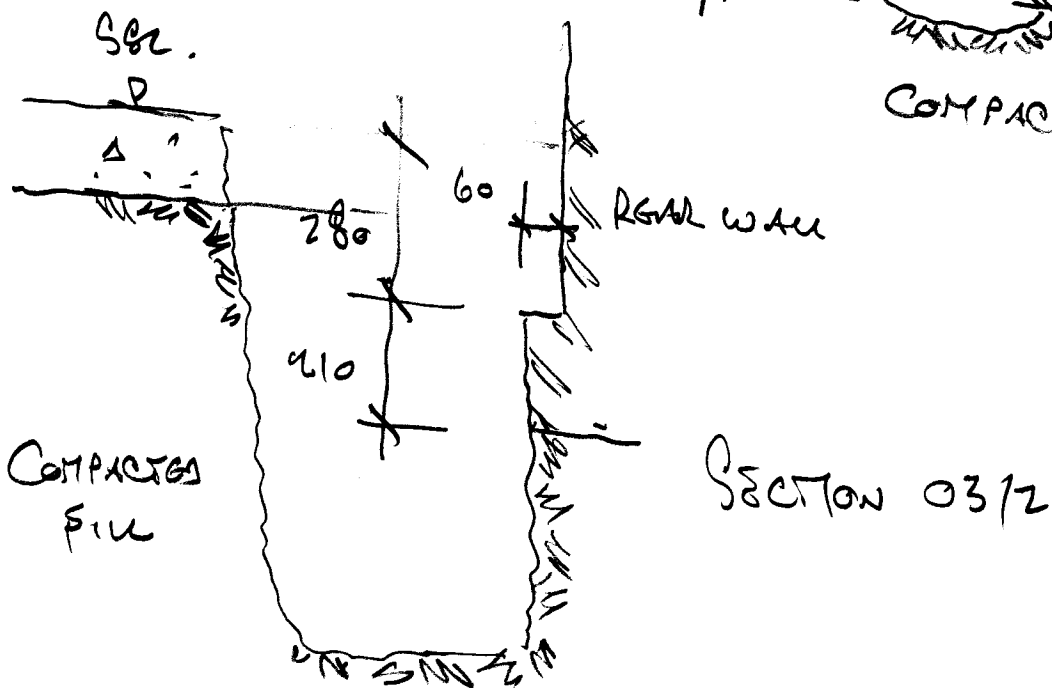 SSL.
COMPAC
60
REAR WALL
280
210
COMPACTED
FILL
SECTION 03/2